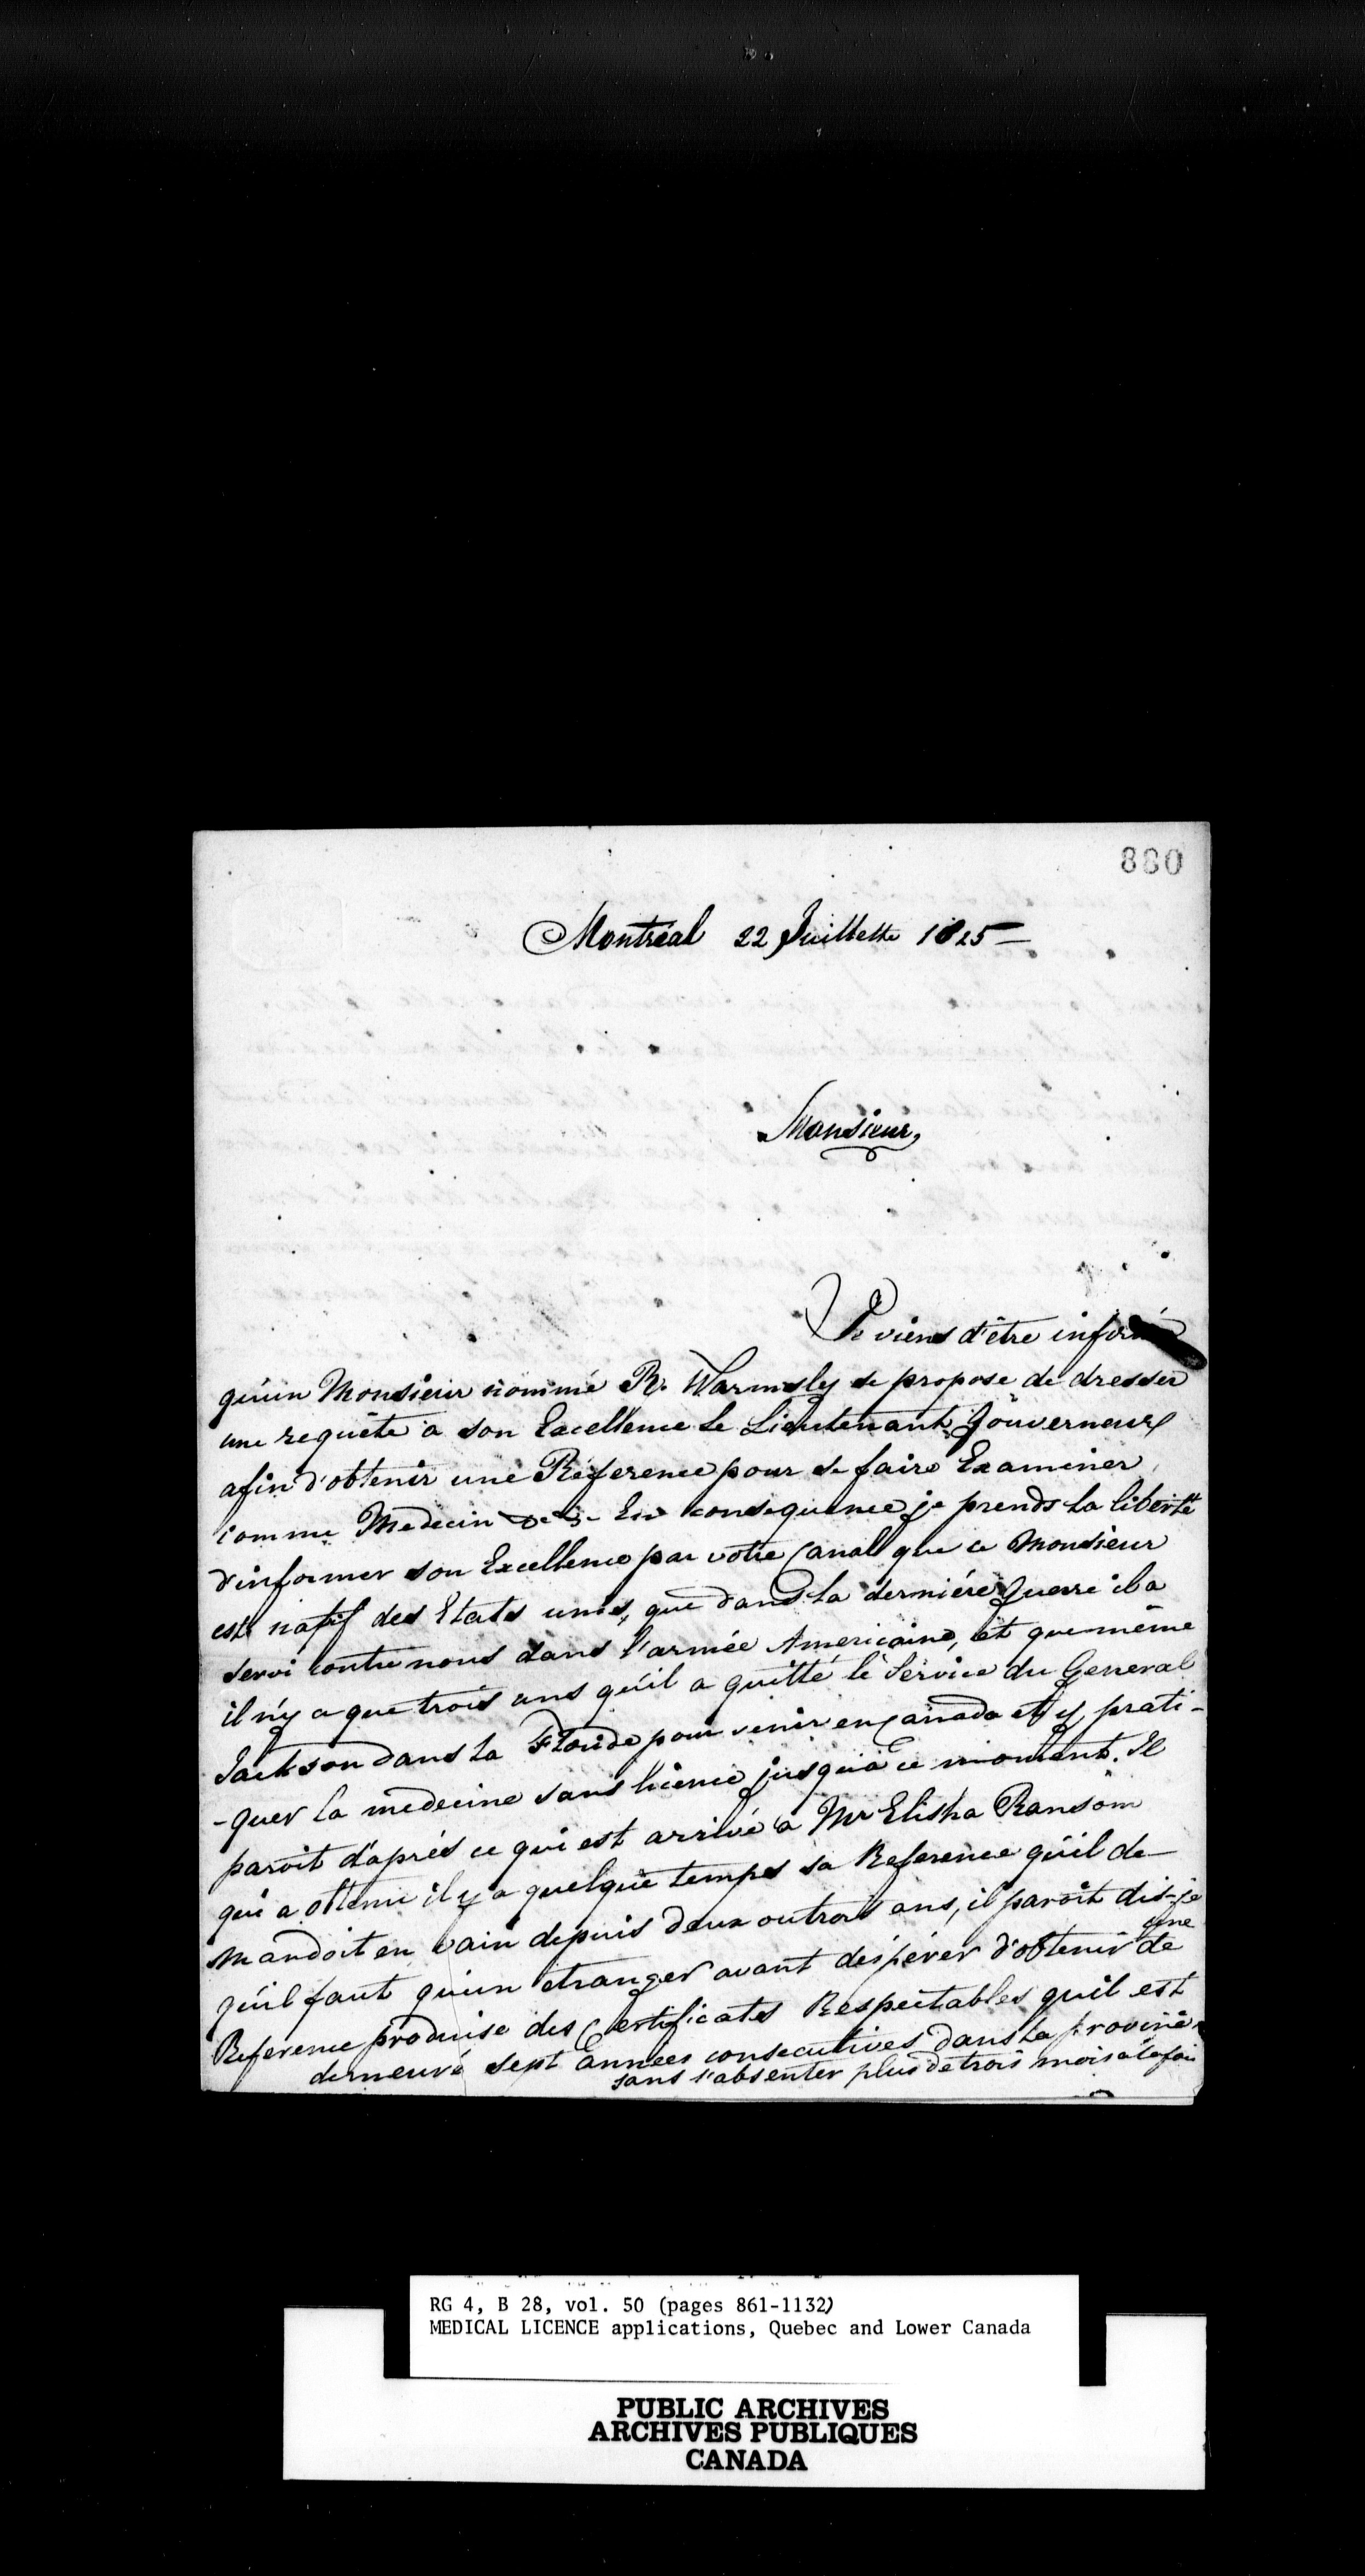 880
Montréal 22 Juillette 1825 —
Monsieur,
Je viens d'être informé
qu'un Monsieur nommé R. Warmsly se propose de dresser
une requête à son Excellence Le Lieutenant Gouverneur
afin d'obtenir une Réference pour se faire Examiner
comme Medecin &c &c - En consequence je prends la liberté
d'informer son Excellence par votre Canal que ce Monsieur
est natif des Etats unis, que dans la derniére Guerre il a
servi contre nous dans l'armée Americaine, et que même
il n'y a que trois ans qu'il a quitté le Service du General
Jackson dans la Floride pour venir en Canada et y prati-
-quer la medecine sans licence jusqu'à ce moment. Il
paroit d'aprés ce qui est arrivé à Mr Elisha Ransom
qui a obtenu il y a quelque temps sa Reference qu'il de-
mandoit en vain depuis deux ou trois ans, il paroit dis-je
qu'il faut qu'un etranger avant d'espérer d'obtenir une de
Reference produise des Certificates Respectables qu'il est
demeuré sept années consecutives dans la province
sans s'absenter plus de trois mois à la fois
RG 4, B 28, vol. 50 (pages 861-1132)
MEDICAL LICENCE applications, Quebec and Lower Canada
PUBLIC ARCHIVES
ARCHIVES PUBLIQUES
CANADA